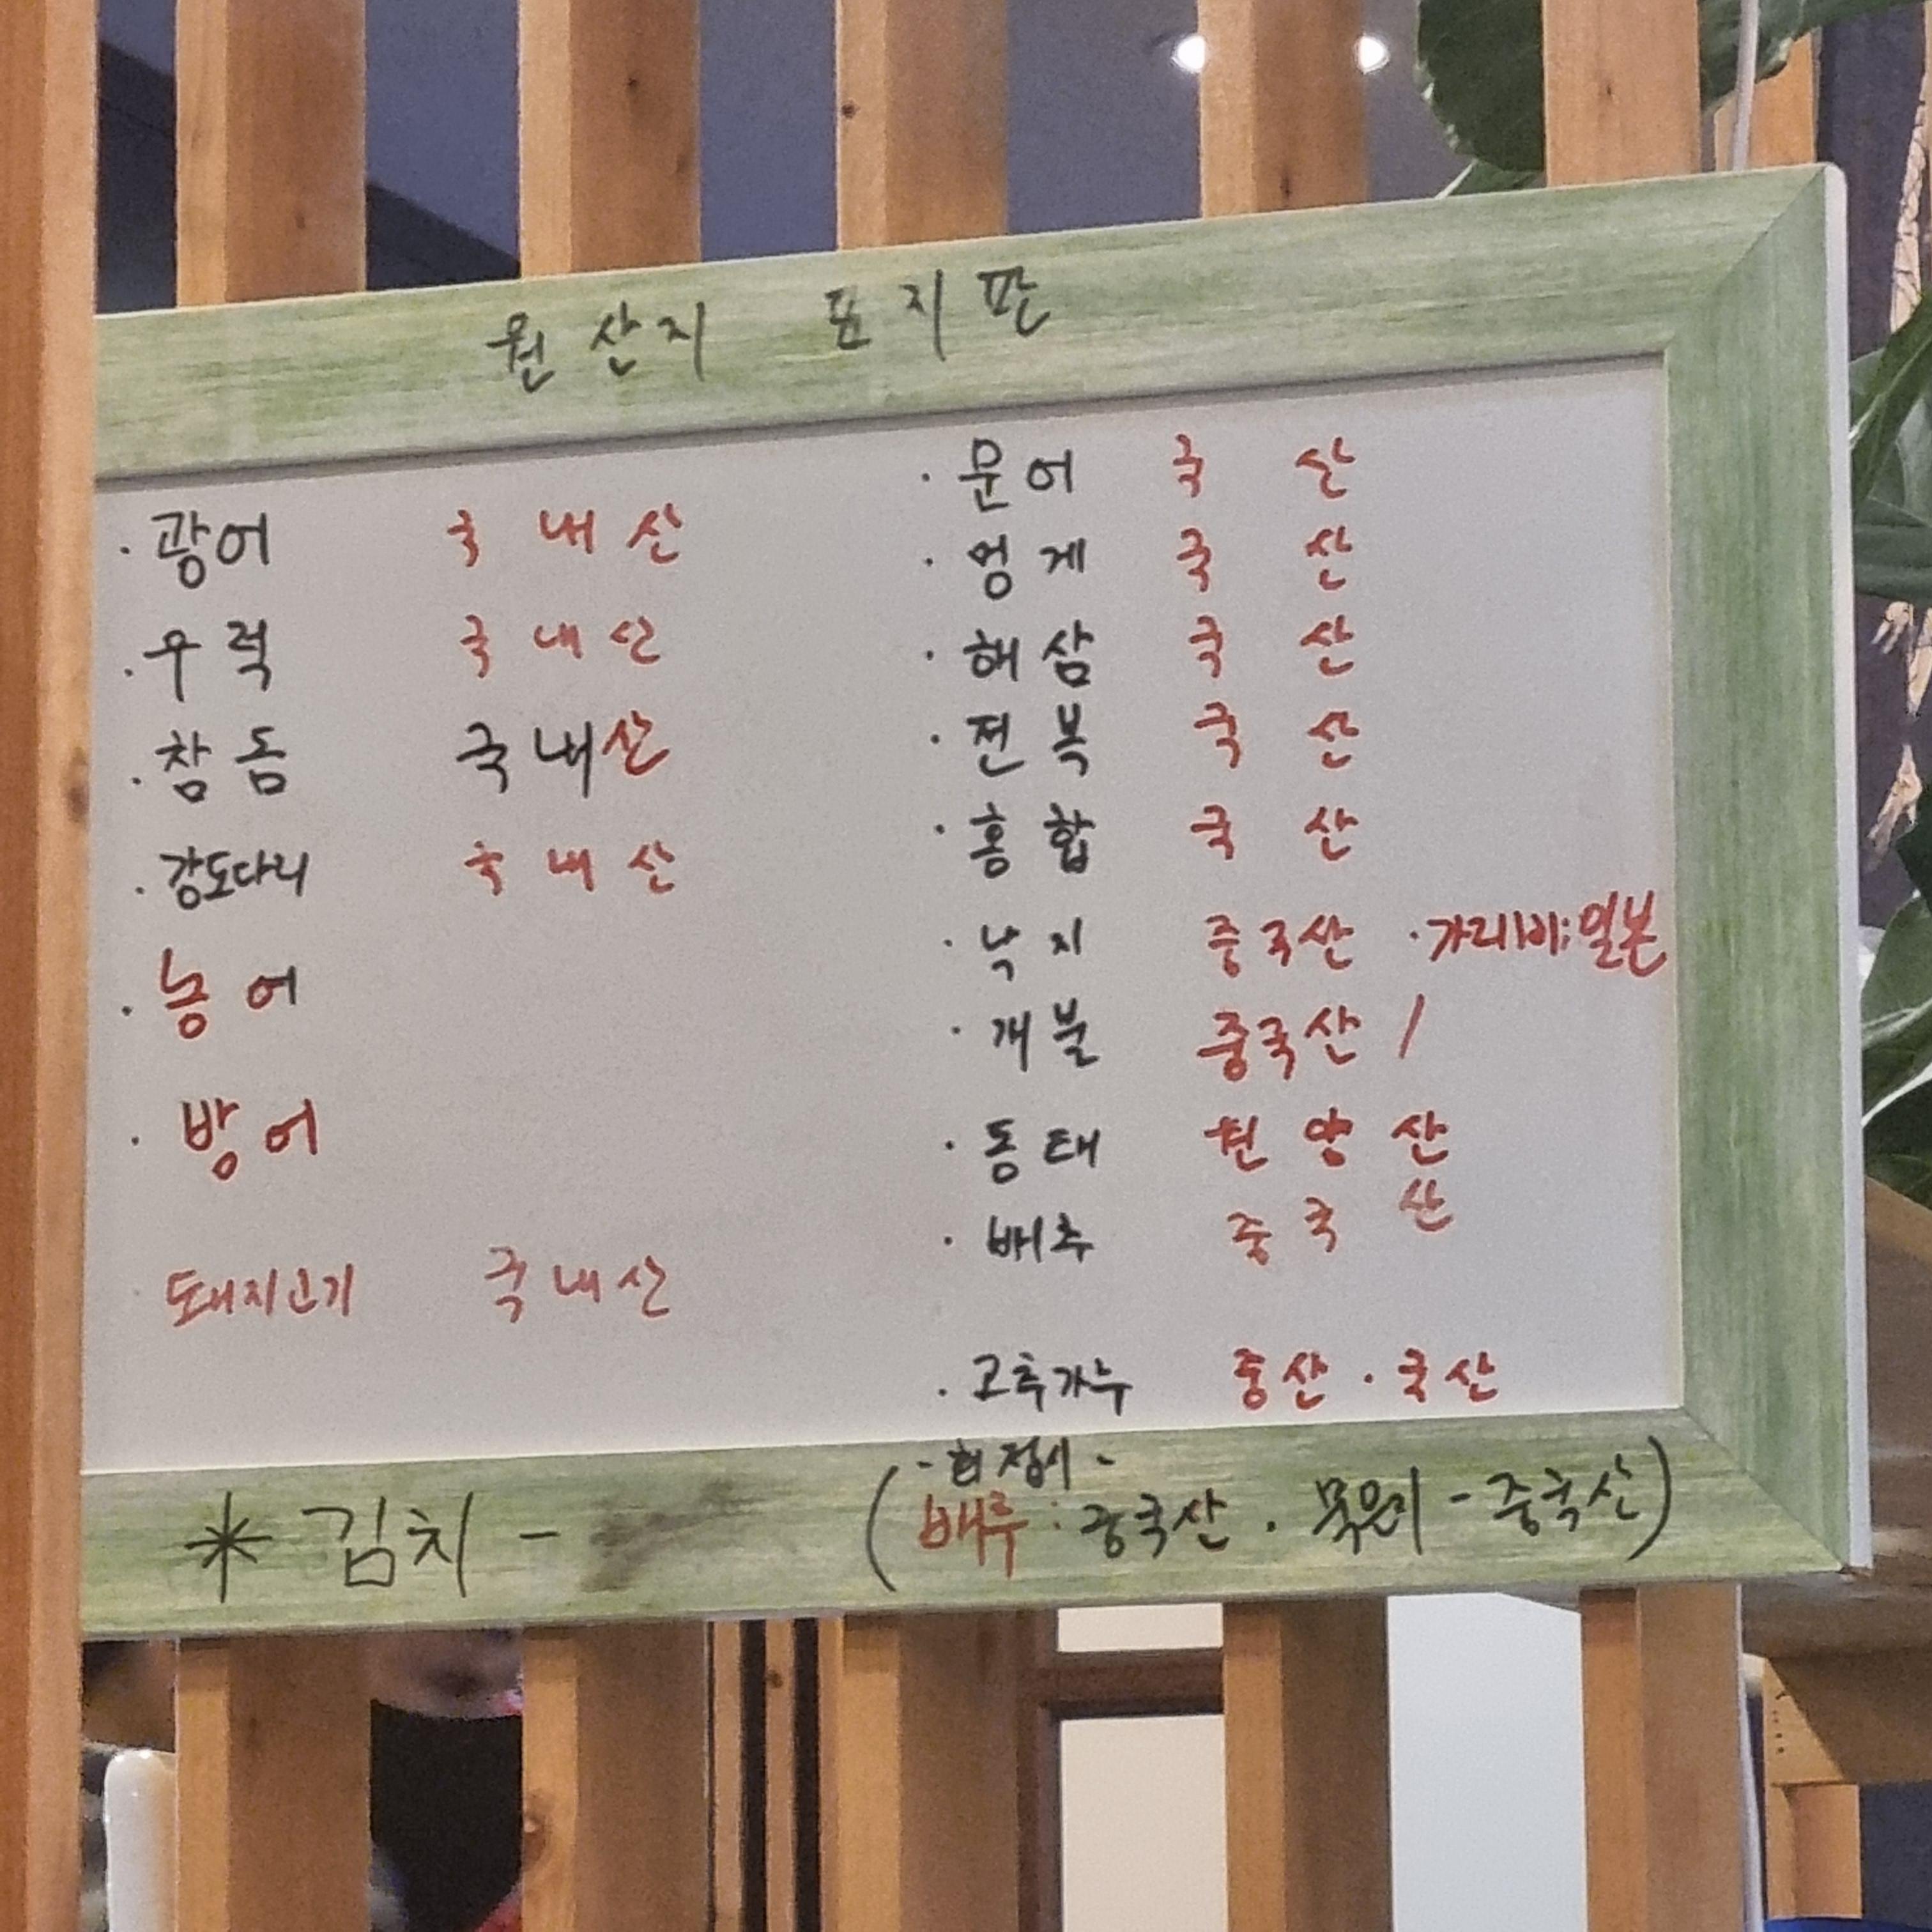 원산지 표지판
· 광어 국내산
· 우럭 국내산
· 참돔 국내산
· 강도다리 국내산
· 농어
· 방어
· 돼지고기 국내산
· 문어 국 산
· 멍게 국 산
· 해삼 국 산
· 전복 국 산
· 홍합 국 산
· 낙지 중국산 · 가리비: 일본
· 개불 중국산 /
· 동태 원양산
· 배추 중국산
· 고추가누 중산 · 국산
* 김치 -
(배추: 중국산 · 묵은지 - 중국산)